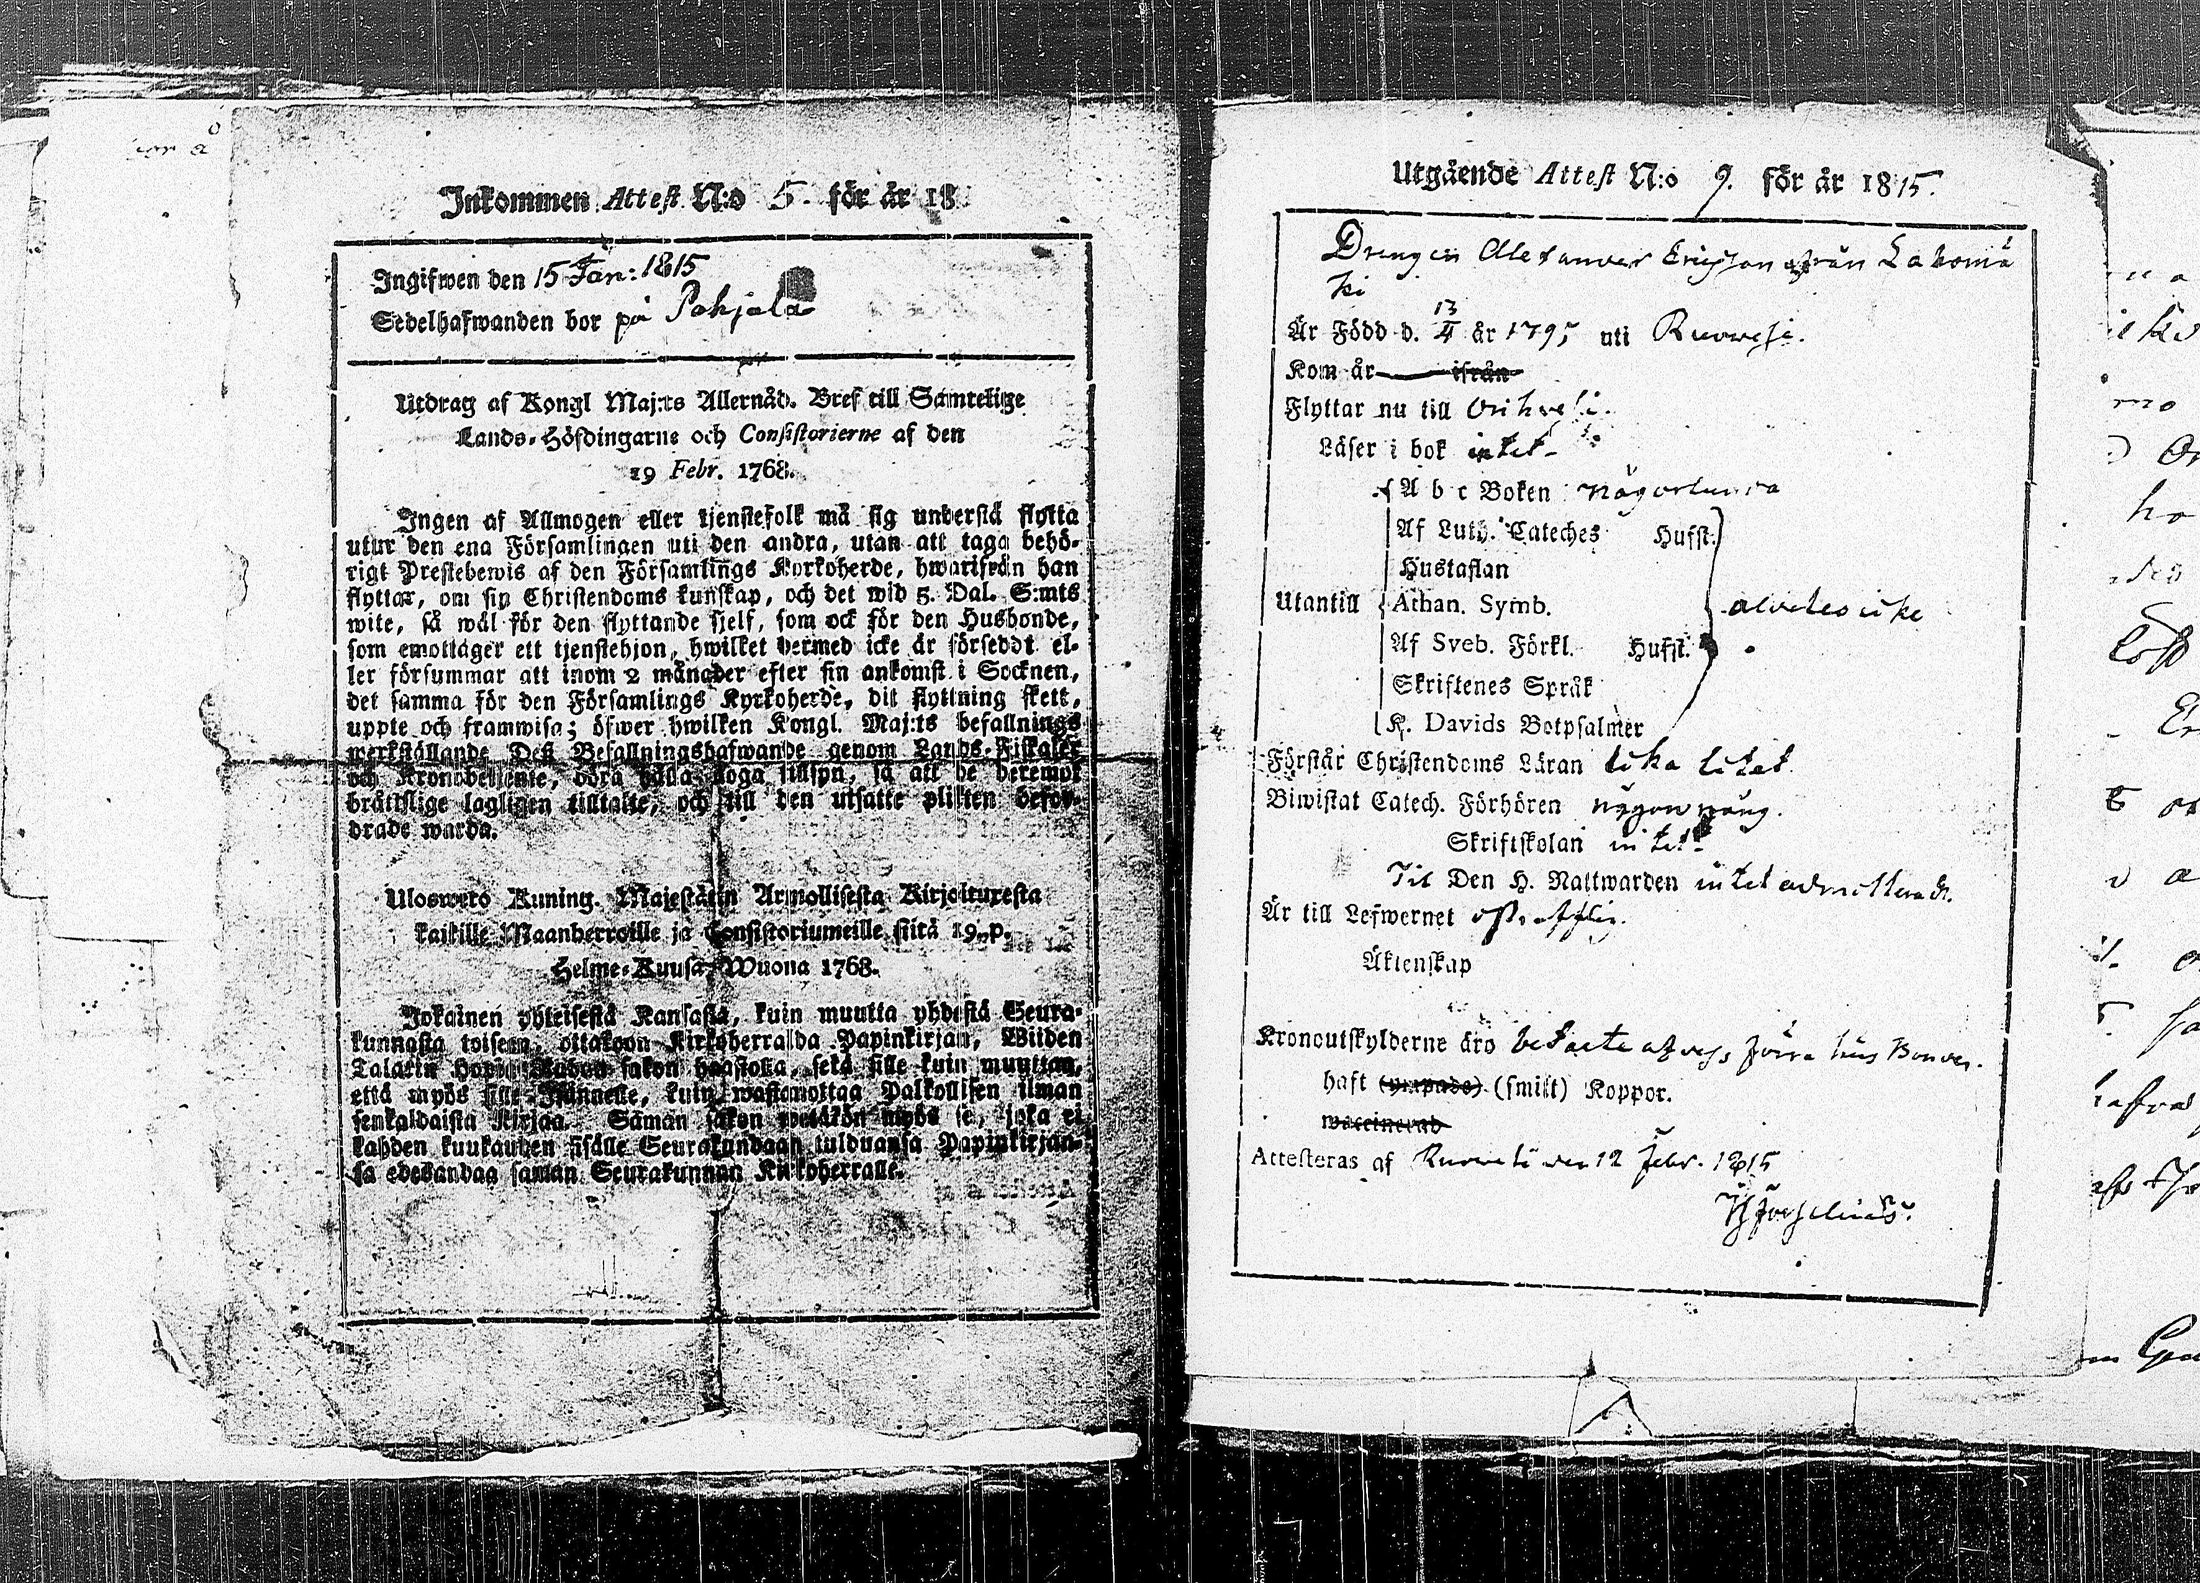 Inkommen Attest N:o 5. för år 18
Ingifwen den 15 Jan: 1815
Sedelhafwanden bor på Pohjala
Utdrag af Kongl Maj:ts Allernåd. Bref till Samtelige
Lands-Höfdingarne och Consistorierne af den
19 Febr. 1768.
Ingen af Allmogen eller tjenstefolk må sig understå flytta
utur den ena Församlingen uti den andra, utan att taga behö-
rigt Prestebewis af den Församlings Kyrkoherde, hwarifrån han
flyttar, om sin Christendoms kunskap, och det wid 5. Dal. S:mts
wite, så wäl för den flyttande sjelf, som ock för den Husbonde,
som emottager ett tjenstehjon, hwilket dermed icke är försedt el-
ler försummar att inom 2 månader efter sin ankomst i Socknen,
det samma för den Församlings Kyrkoherde, dit flyttning skett,
uppte och framwisa; öfwer hwilken Kongl. Maj:ts befallnings
werkställande Dess Befallningshafwande genom Lands-Fiskaler
och Kronobetjente, böra hålla noga tillsyn, så att de deremot
bråttslige lagligen tilltalte, och till den utsatte plikten befor-
drade warda.
Uloswero Kuning. Majestätin Armollisesta Kirjoituxesta
kaikille Maanherroille ja Consistoriumeille siitä 19. p.
Helme-Kuusa Wuona 1768.
Jokainen yhteisestä Kansasta, kuin muutta yhdestä Seura-
kunnasta toiseen, ottakoon Kirkoherralda Papinkirjan, Wiiden
Talarin sakon haastolla, sekä sille kuin muuttan,
että myös sille Isännelle, kuin wastanottaa Palkollisen ilman
senkaldaista Kirjaa. Saman sakon myös se, joka ei
kahden kuukauden sisälle Seurakundaan tulduansa Papinkirjan-
sa edesandaa saman Seurakunnan Kirkoherralle.
Utgående Attest N:o 9. för år 1815.
Drengen Alexander Ericsson från Lakomä
ki
Är Född d. 13/4 år 1795 uti Ruowesi.
Kom år ifrån
Flyttar nu till Orihwesi.
Läser i bok intet
A b c Boken någorlunda
Af Luth. Cateches Hufst.
Hustaflan
Utantill Athan. Symb. alldeles icke
Af Sveb. Förkl. Hufst.
Skriftenes Språk
K. Davids Botpsalmer
Förstår Christendoms Läran lika litet
Biwistat Catech. Förhören någon gång.
Skriftskolan intet
Til Den H. Nattwarden intet admitterad.
Är till Lefwernet ostrafflig.
Äktenskap
Kronoutskylderne äro betalte af dess förra Hus Bonde.
haft (ympade) (smitt) Koppor.
waccinerad
Attesteras af Ruowesi den 12 Febr. 1815